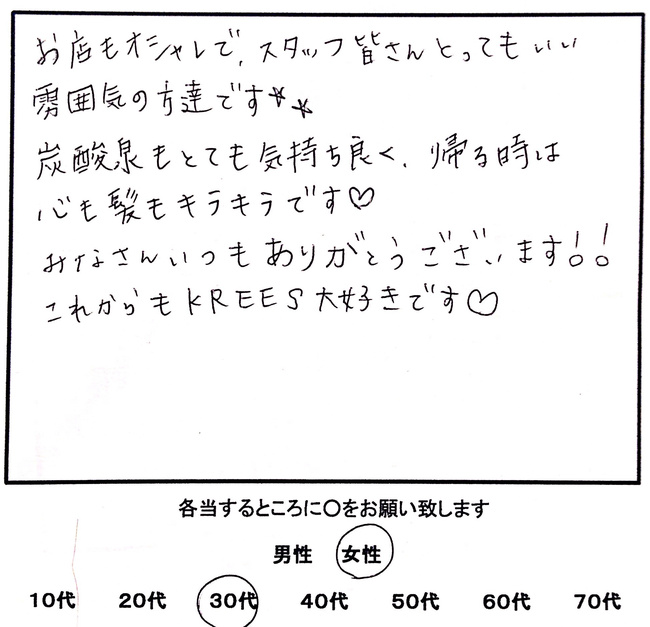 お店もオシャレで、スタッフ皆さんとってもいい
雰囲気の方達です☆☆
炭酸泉もとても気持ち良く、帰る時は
心も髪もキラキラです♡
みなさんいつもありがとうございます!!
これからもKREES大好きです♡
各当するところに〇をお願い致します
男性 女性
10代 20代 30代 40代 50代 60代 70代